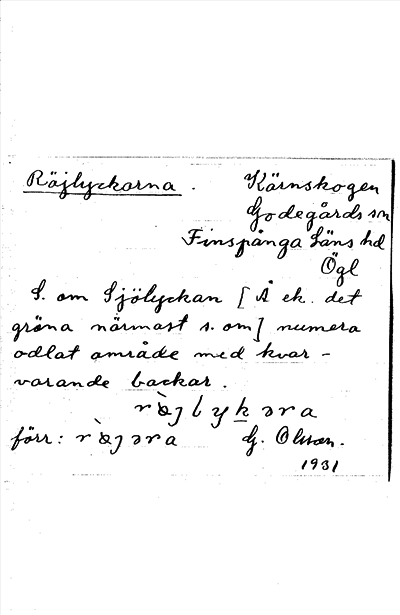 Röjlyckarna.
Kärnskogen
Godegårds sn
Finspånga Läns hd
Ögl
S. om Sjölyckan [Å ek. det
gröna närmast s. om] numera
odlat område med kvar-
varande backar.
rö̀jlykəra
förr: rö̀jəra
G. Olsson.
1931